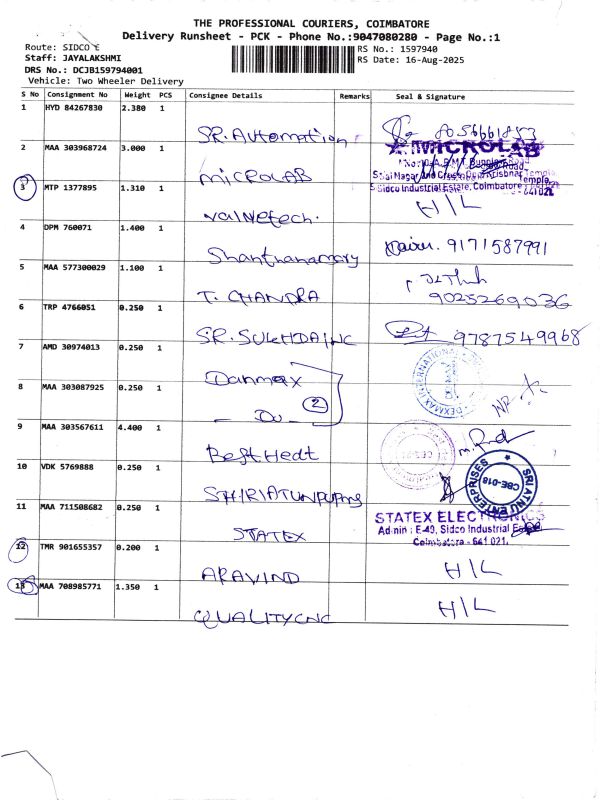 THE PROFESSIONAL COURIERS, COIMBATORE
Delivery Runsheet - PCK - Phone No.:9047080280 - Page No.:1
Route: SIDCO E
RS No.: 1597940
Staff: JAYALAKSHMI
RS Date: 16-Aug-2025
DRS No.: DCJB159794001
Vehicle: Two Wheeler Delivery
S No Consignment No Weight PCS Consignee Details Remarks Seal & Signature
1 HYD 84267830 2.380 1
SR. Automation
2 MAA 303968724 3.000 1
MICROLAB
MICROLAB
3 MTP 1377895 1.310 1
Sidco Industrial Estate, Coimbatore
H/L
Valvetech.
4 DPM 760071 1.400 1
9171587991
5 MAA 577300029 1.100 1
T. CHANDRA
9025269036
6 TRP 4766051 0.250 1
SR. SUKHDA INC
9787549968
7 AMD 30974013 0.250 1
Danmax
8 MAA 303087925 0.250 1
- Do - 2
9 MAA 303567611 4.400 1
10 VDK 5769888 0.250 1
SRI ATNU ENTERPRISES
CBE-018
11 MAA 711508682 0.250 1
STATEX ELECTRONICS
Admin : E-49, Sidco Industrial
STATEX
Coimbatore - 641 021.
12 TMR 901655357 0.200 1
ARAVIND
H/L
13 MAA 708985771 1.350 1
QUALITYCNC
H/L